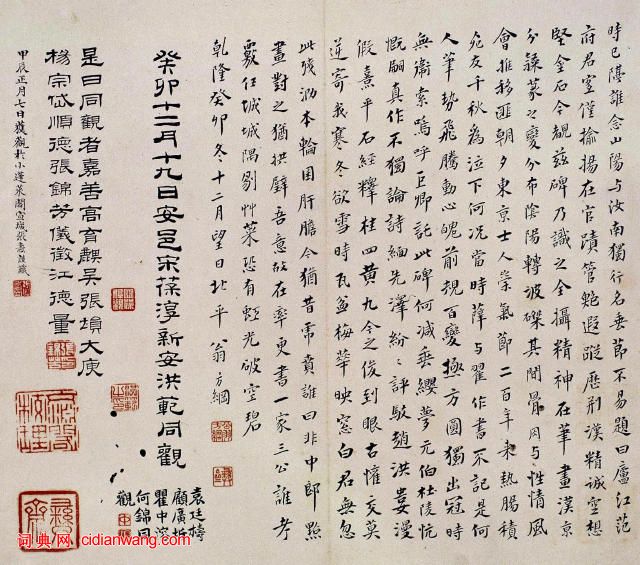 時已諶誰念山陽与南獨行名垂節不易題曰廬江范
府君豈僅揄揚在官蹟管鮑遐蹤歷荊漢精誠空想
堅金石今覩茲碑乃識之全攝精神在筆畫漢京
分隸蔡之變分布陰陽轉波磔其間骨肉与性情風
會推移匪朝夕東京士人崇氣節二百年來熱腸積
死友千秋為泣下何況當時薛与翟作書不記是何
人筆勢飛騰動心魄前規百變極方圓獨出冠時
無衞索嗚呼巨卿託此碑何減垂纓夢元伯杜陵忼
慨嗣真作不獨論詩緬先澤紛紛評駁趙洪婁漫
假熹平石經釋桂四黃九今之俊到眼古懽莫
逆寄我寒冬欲雪時瓦盆梅華映窓白君無忽
此殘泐本輪囷肝膽今猶昔誰曰非中郎點
畫對之猶拱璧吾意故在率更書一家三公誰考
覈任城城隅剔艸萊恐有虹光破空碧
乾隆癸卯冬十二月望日北平翁方綱
癸卯十二月十九日安邑宋葆淳新安洪範同觀
袁廷檮
顧廣圻
瞿中溶
何錦同
觀
是日同觀者嘉善高育麒吳張塤大庾
楊宗岱順德張錦芳儀徵江德量
甲辰正月七日獲觀於小蓬萊閣宣城張燾謹識
词典网:cidianwang.com